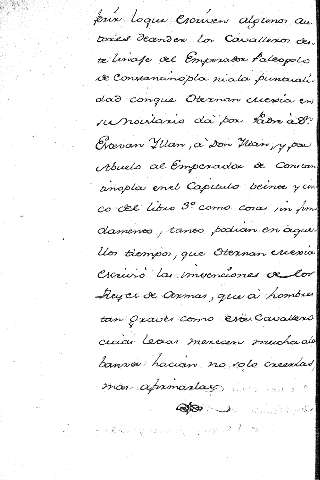 frir lo que escriven algunos au-
tores decender los Cavalleros des-
te linaje del Emperador Paleopolo
de Constantinopla ni a la puntuali-
dad con que Oternan mexia en
su Novilario da por Padre à Dn
Estevan Yllan, à Don Yllan, y por
Abuelo al Emperador de Constan
tinopla en el Capitulo veinte y cin
co del libro 3º como cosas sin fun
damento, tanto podian en aque
llos tiempos, que Oternan mexia
escrivió las invenciones de los
Reyes de Armas, que à hombres
tan graves como este Cavallero
cuias letras merecen mucha ala
banza hacian no solo creerlas
mas afirmarlas.